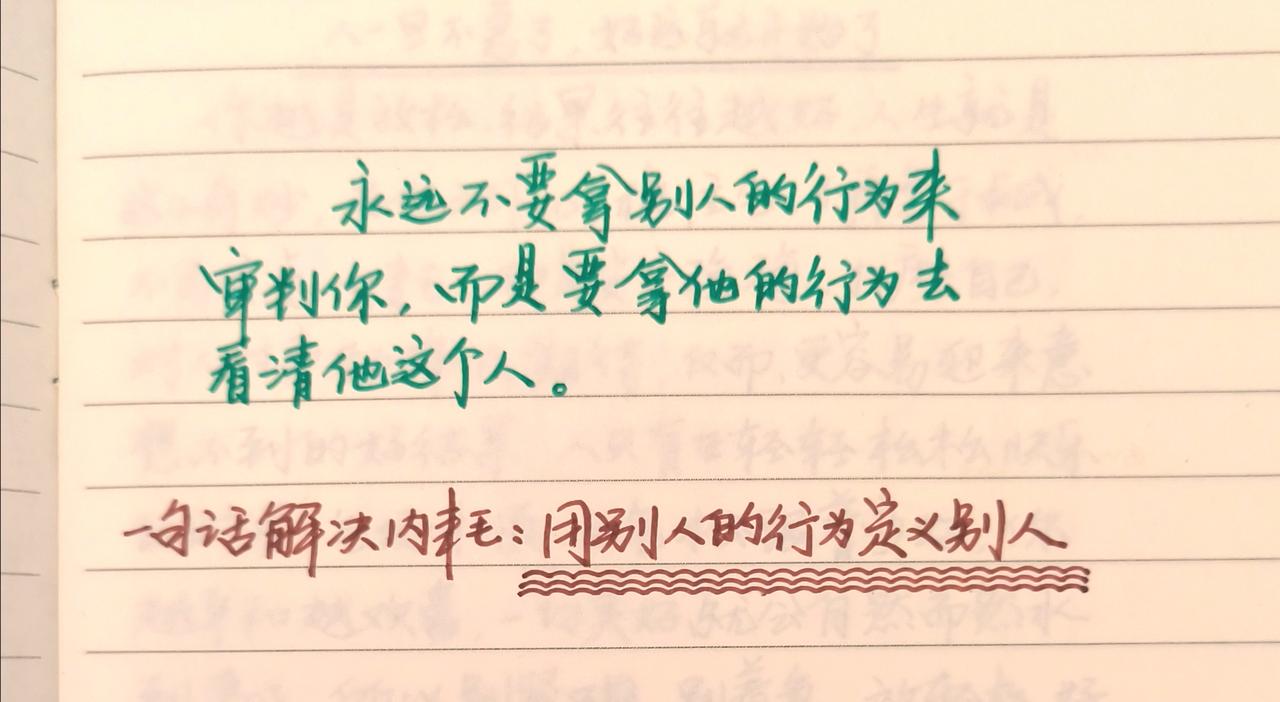 永远不要拿别人的行为来
审判你，而是要拿他的行为去
看清他这个人。
一句话解决内耗：用别人的行为定义别人